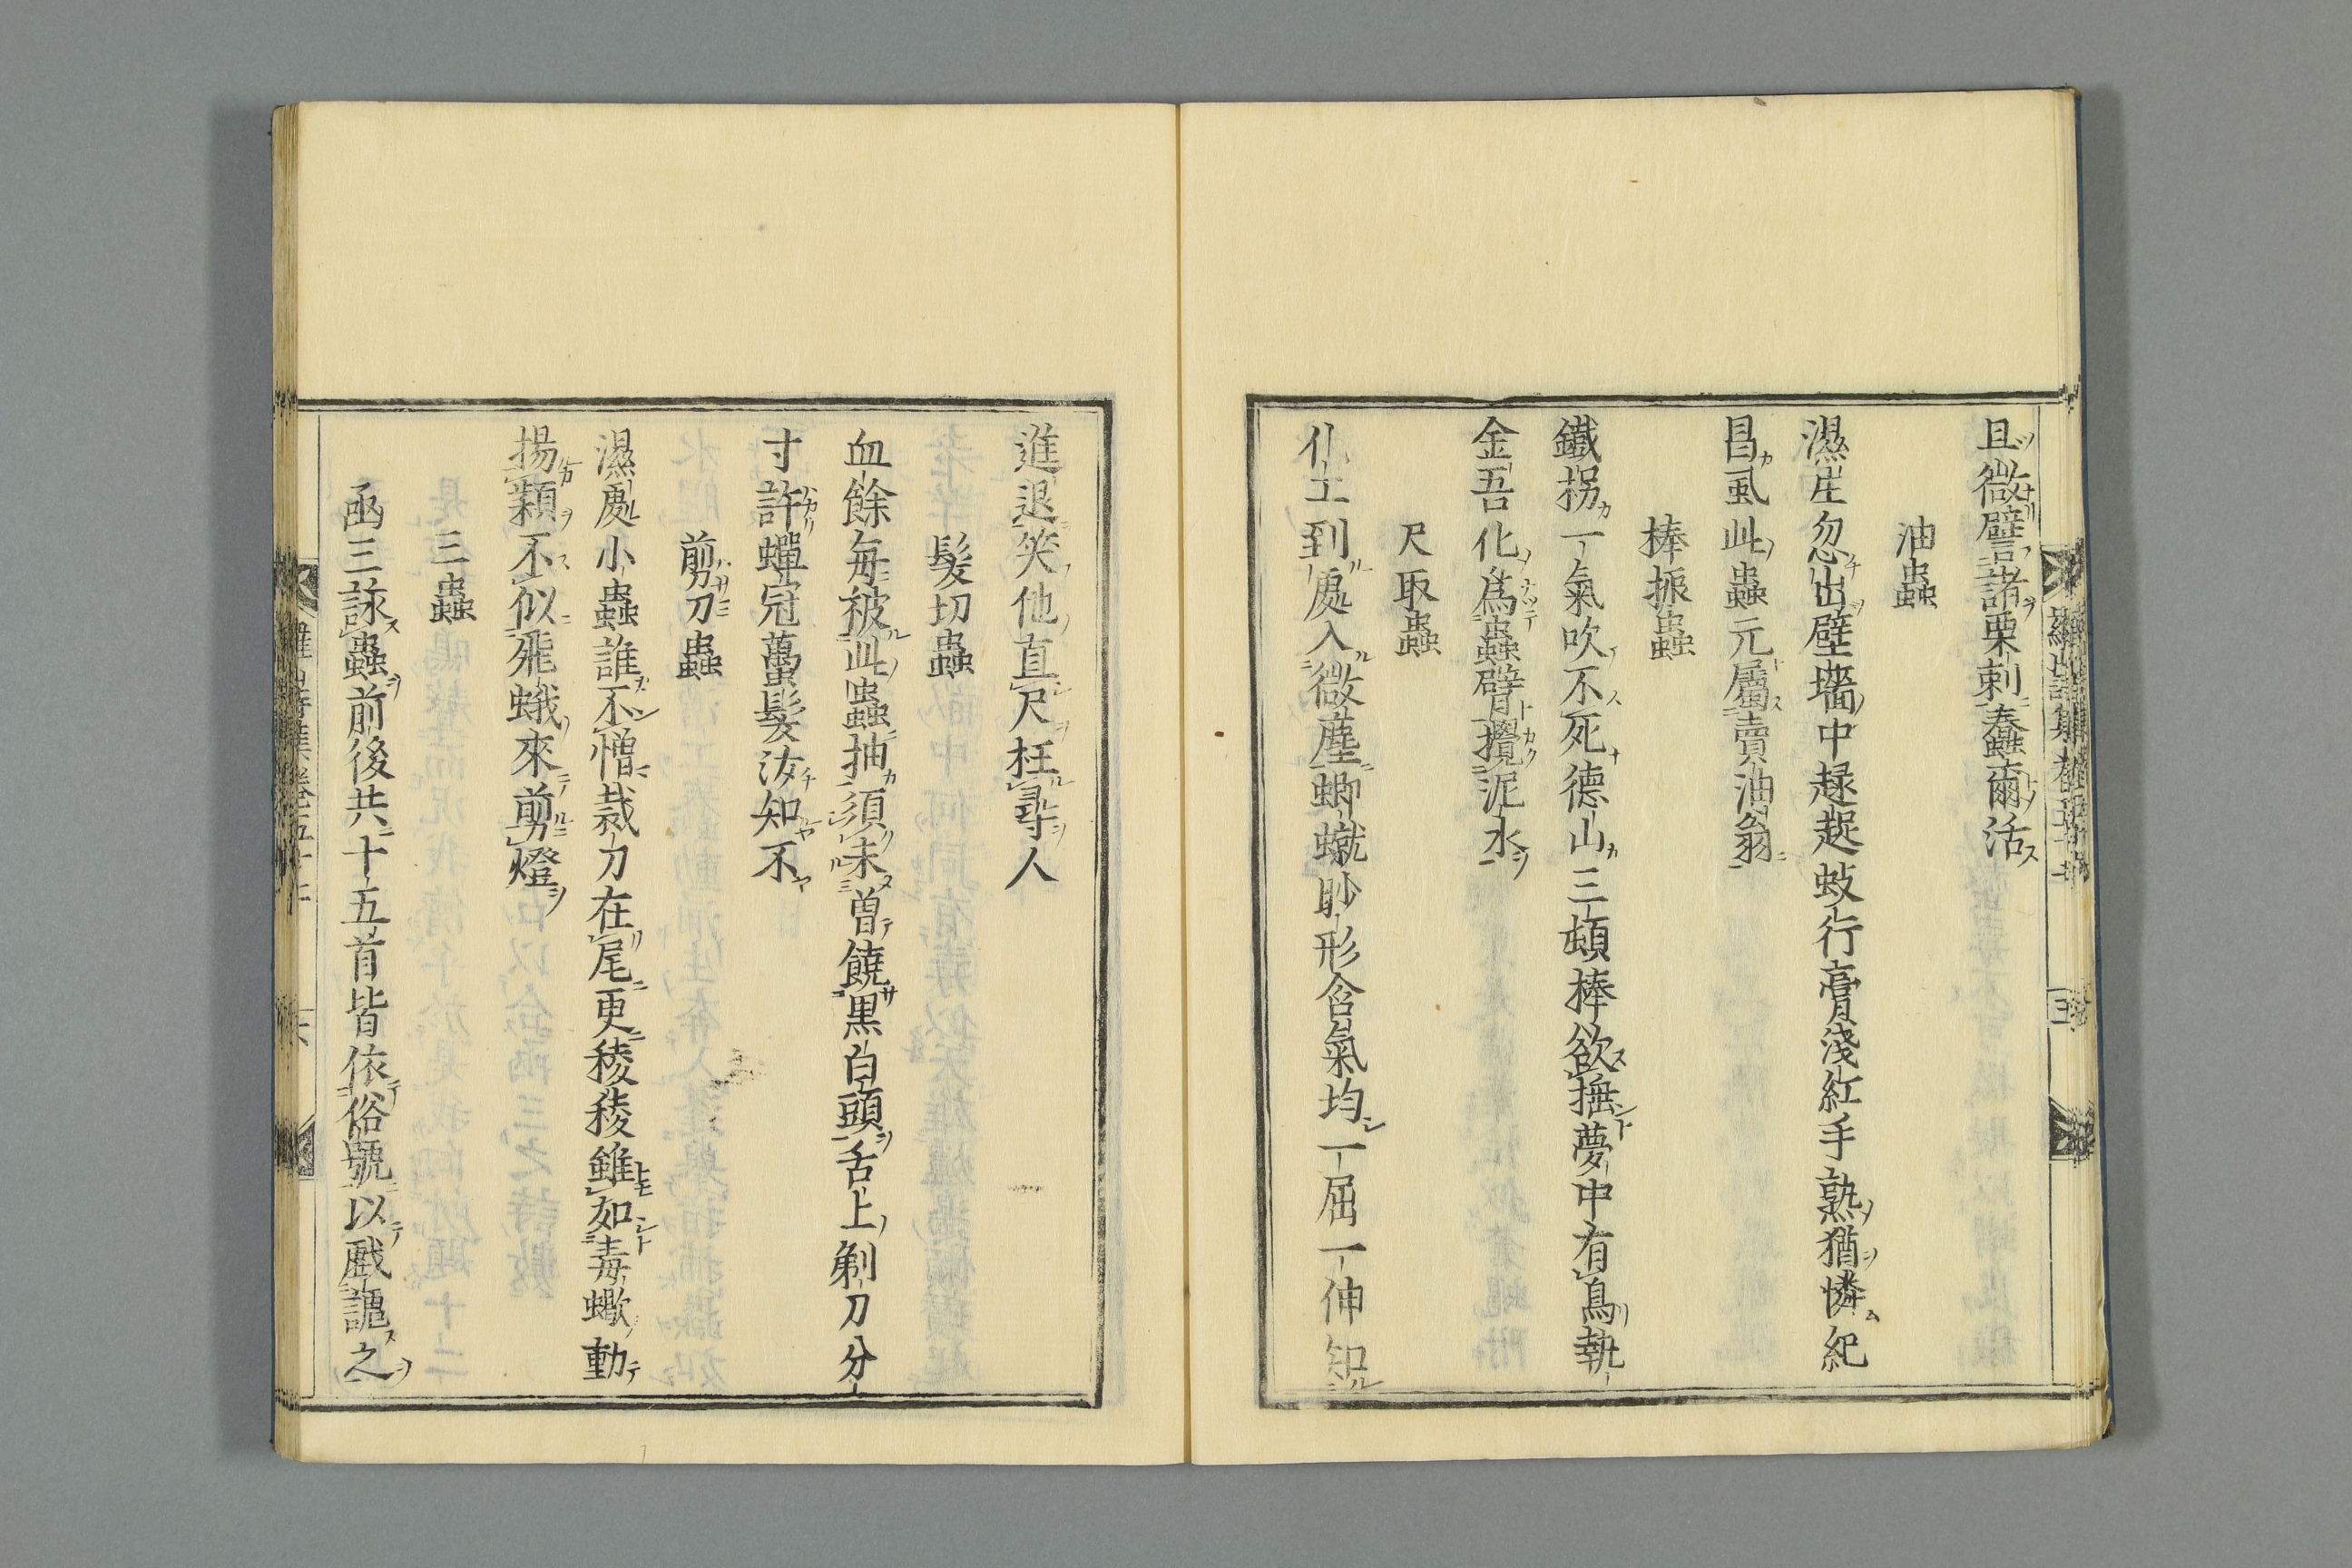 且微譬諸栗刺蠢爾活
油蟲
濕生忽出壁墻中趢起蚑行膏淺紅手熟猶憐紀
昌虱此蟲元屬賣油翁
棒振蟲
鐵拐一氣吹不死德山三頓棒欲撫夢中有鳥執
金吾化為蟲臂攪泥水
尺取蟲
化工到處入微塵蝍蹴眇形含氣均一屈一伸知
進退笑他直尺枉尋人
髮切蟲
血餘每被此蟲抽須未曾饒黒白頭舌上剃刀分
寸許蟬冠萬髮汝知不
剪刀蟲
濕處小蟲誰不憎裁刀在尾更稜稜雖如毒蠍動
揚穎不似飛蛾來剪燈
三蟲
函三詠蟲前後共十五首皆依俗號以戲謔之